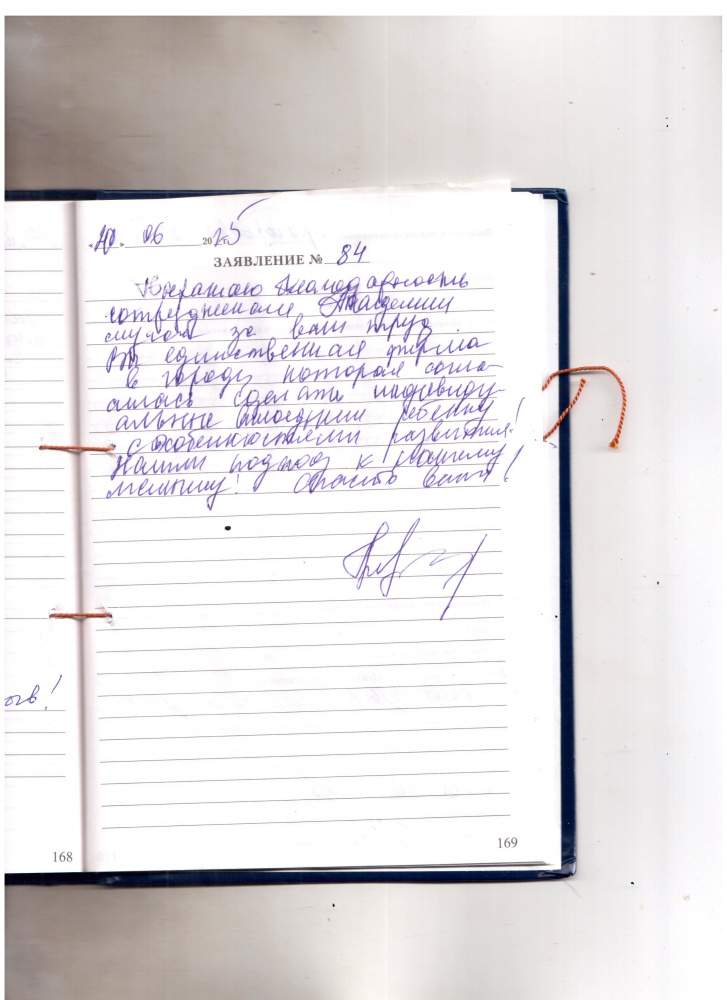 «20» 06 2025 г.
ЗАЯВЛЕНИЕ № 84
Выражаю благодарность
сотрудникам Академии
слуха за ваш труд
Вы единственная фирма
в городе которая согла
силась сделать индивиду-
альные вкладыши ребенку
с особенностями развития!
Нашли подход к нашему
малышу! Спасибо Вам!
ого!
168
169